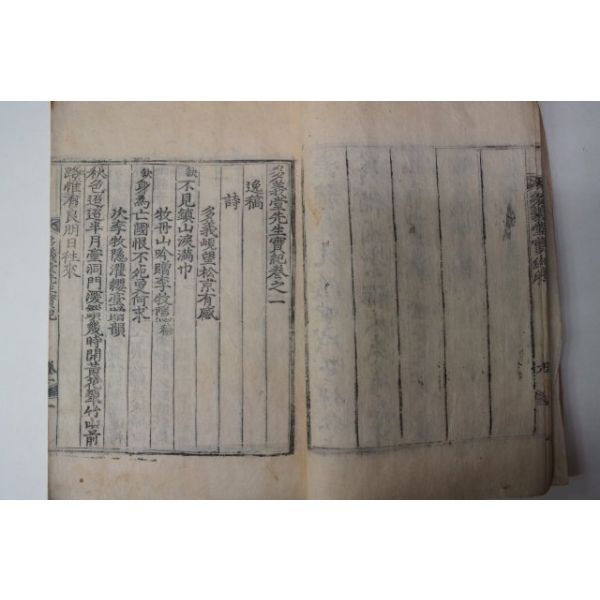 多義堂先生實紀卷之一
逸稿
詩
多義峴望松京有感
缺不見鎮山淚滿巾
牧丹山吟贈李牧隱穡
缺身為亡國恨不死更何求
次李牧隱濯纓臺韻
秋色迢迢半月臺洞門深鎖幾時開黃花翠竹山前
路惟有良朋日往來